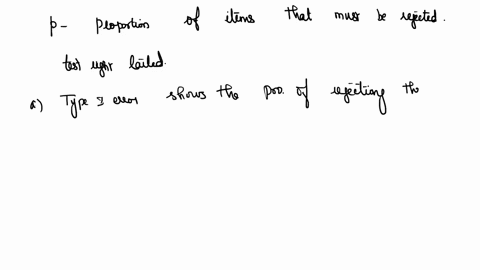 p - proportion of items that must be rejected.
test right tailed.
a) Type I error shows the prob. of rejecting the